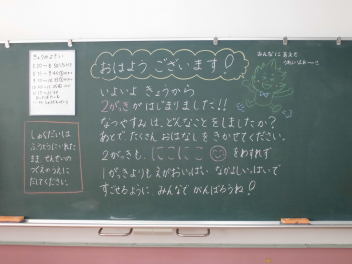 おはよう ございます!
みんなに 会えて
うれしいよ〜
いよいよ きょうから
2がっきがはじまりました!!
なつやすみは、どんなことをしましたか?
あとで たくさん おはなしを きかせてください。
2がっきも、にこにこ をわすれず
1がっきよりも えがおいっぱい なかよしいっぱいで
すごせるように みんなで がんばろうね!
きょうのよてい
しゅくだいは
ふうとうにいれた
まま、せんせいの
つくえのうえに
だしてください。